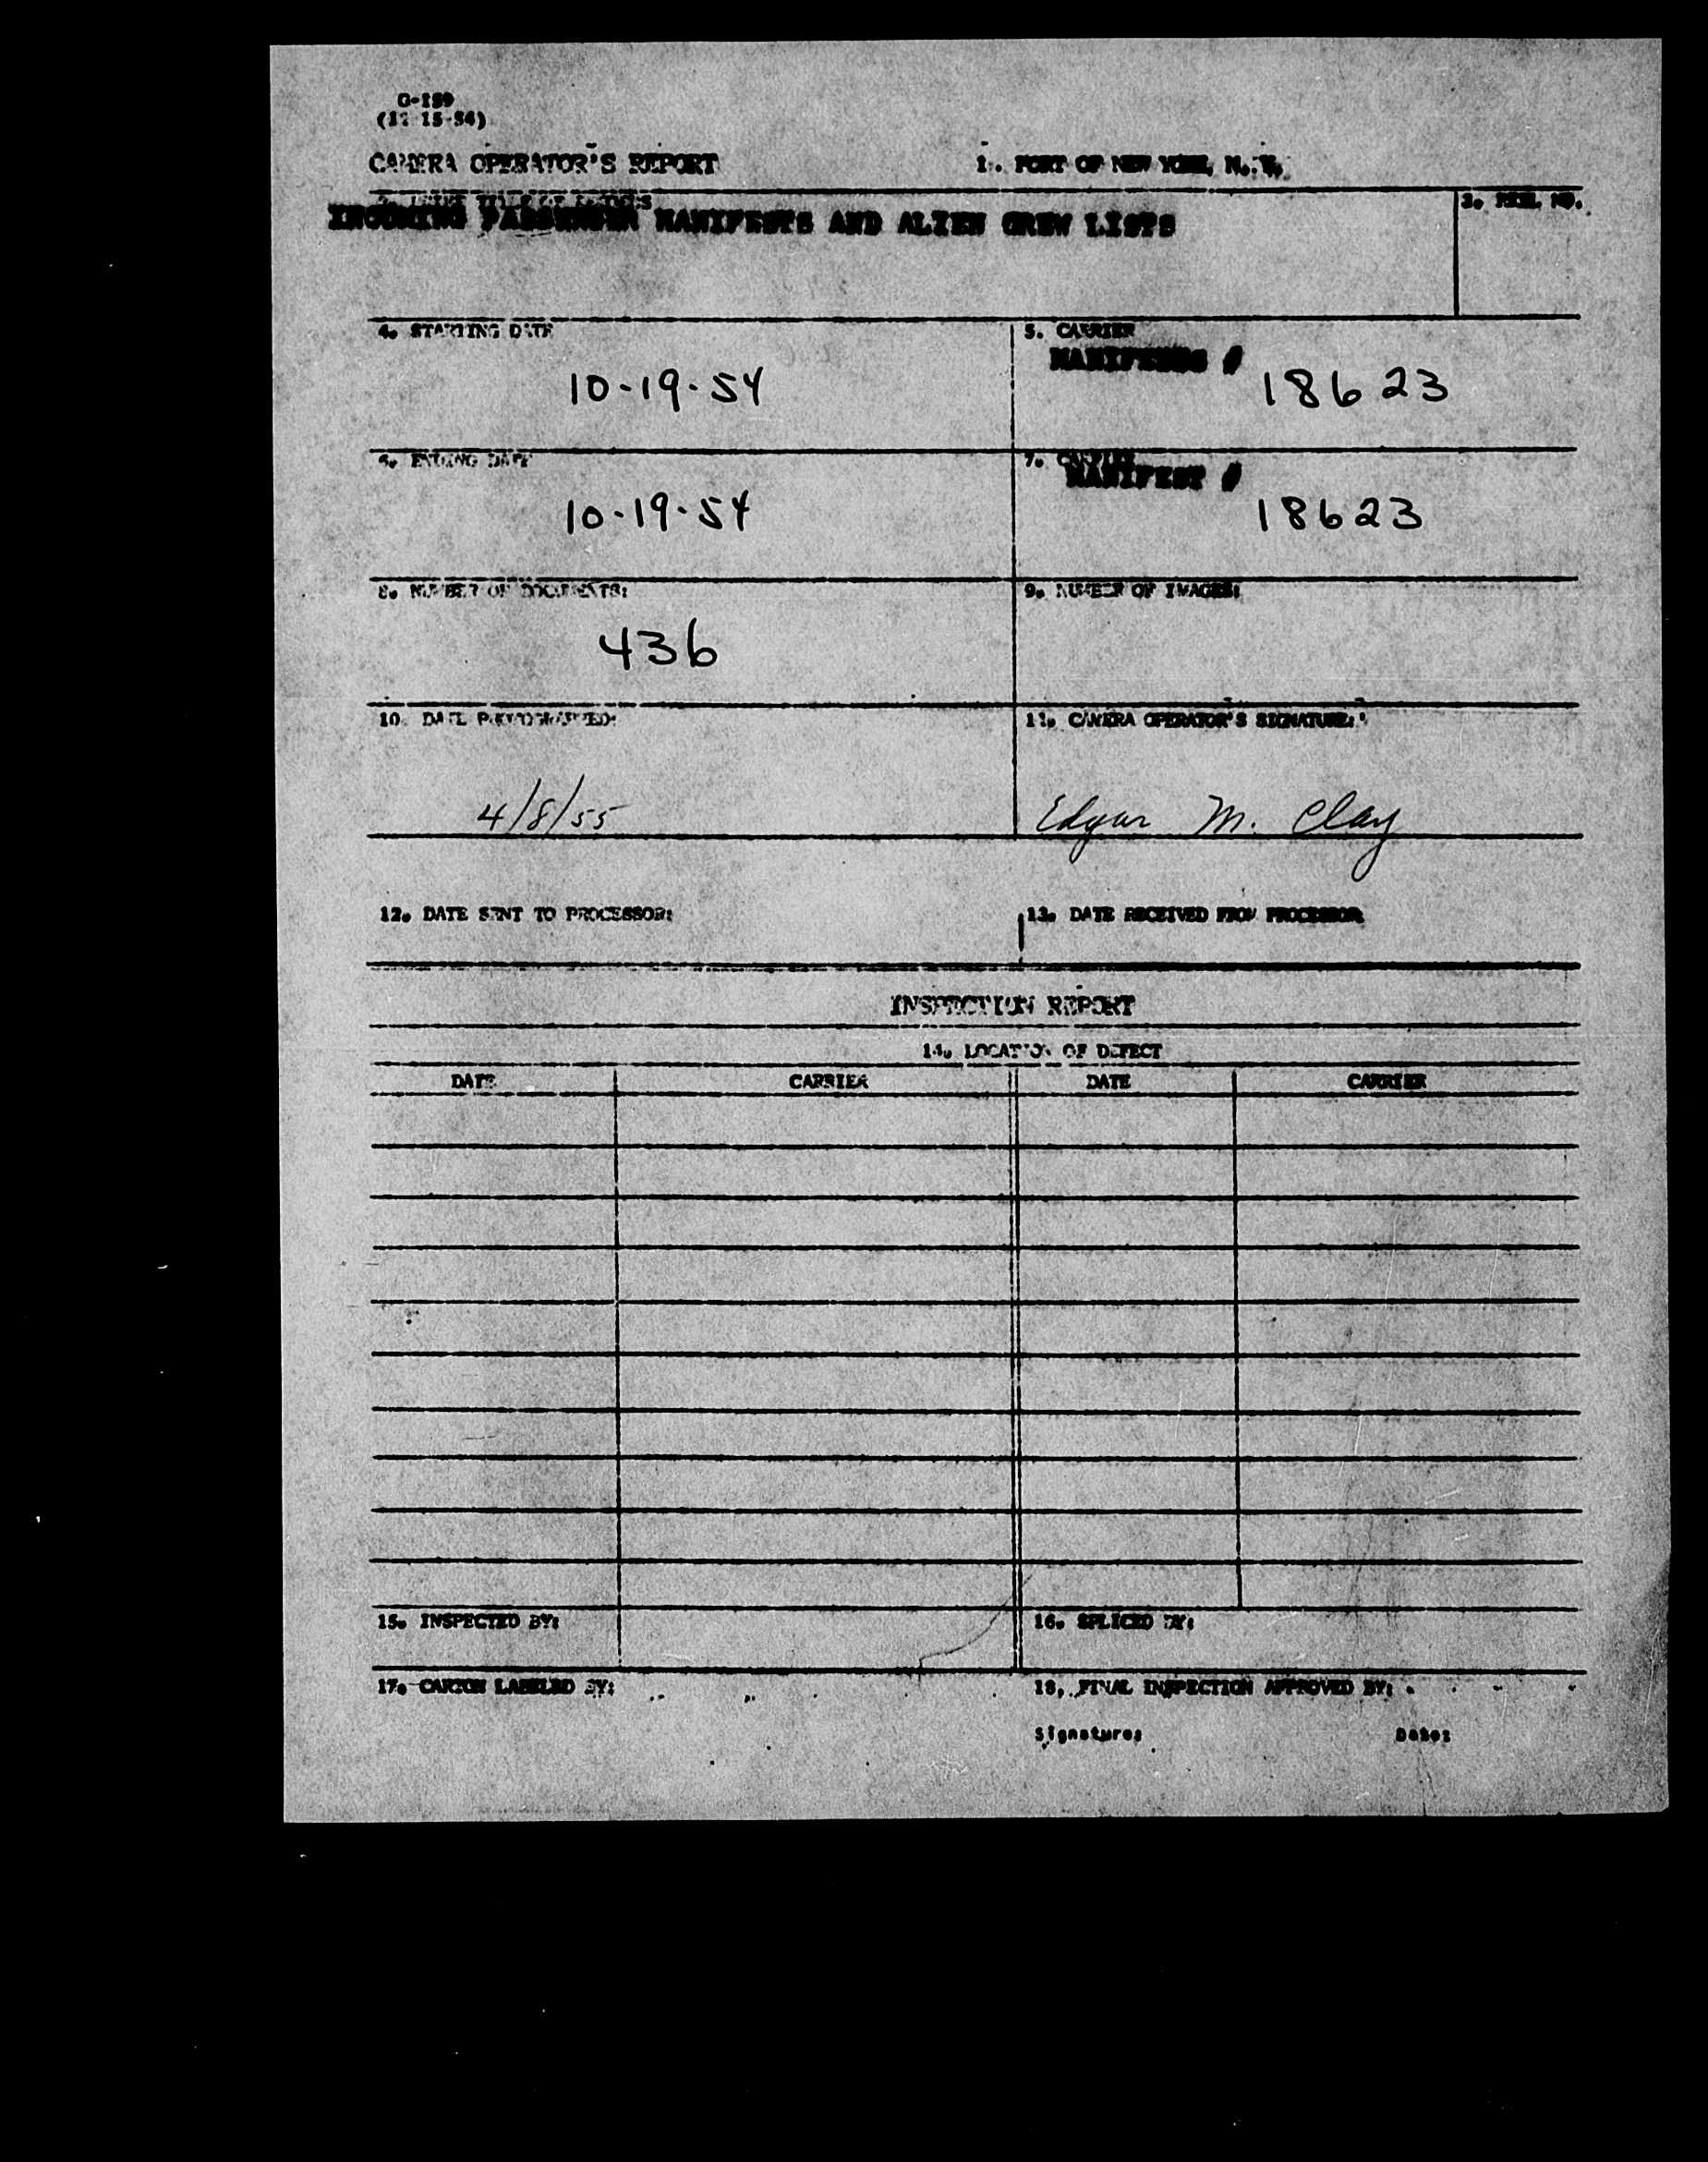 G-159
CAMERA OPERATOR'S REPORT
1. PORT OF NEW YORK, N. Y.
INCOMING PASSENGER MANIFESTS AND ALIEN CREW LISTS
3. REEL NO.
4. STARTING DATE
10-19-54
5. CARRIER
MANIFESTS #
18623
6. ENDING DATE
10-19-54
7. CARRIER
MANIFEST #
18623
8. NUMBER OF DOCUMENTS:
436
9. NUMBER OF IMAGES:
10. DATE PHOTOGRAPHED:
4/8/55
11. CAMERA OPERATOR'S SIGNATURE:
Edgar M. Clay
12. DATE SENT TO PROCESSOR:
13. DATE RECEIVED FROM PROCESSOR
INSPECTION REPORT
14. LOCATION OF DEFECT
DATE CARRIER DATE CARRIER
15. INSPECTED BY:
16. SPLICED BY:
17. CARTON LABELED BY:
18. FINAL INSPECTION APPROVED BY:
Signature: Date: